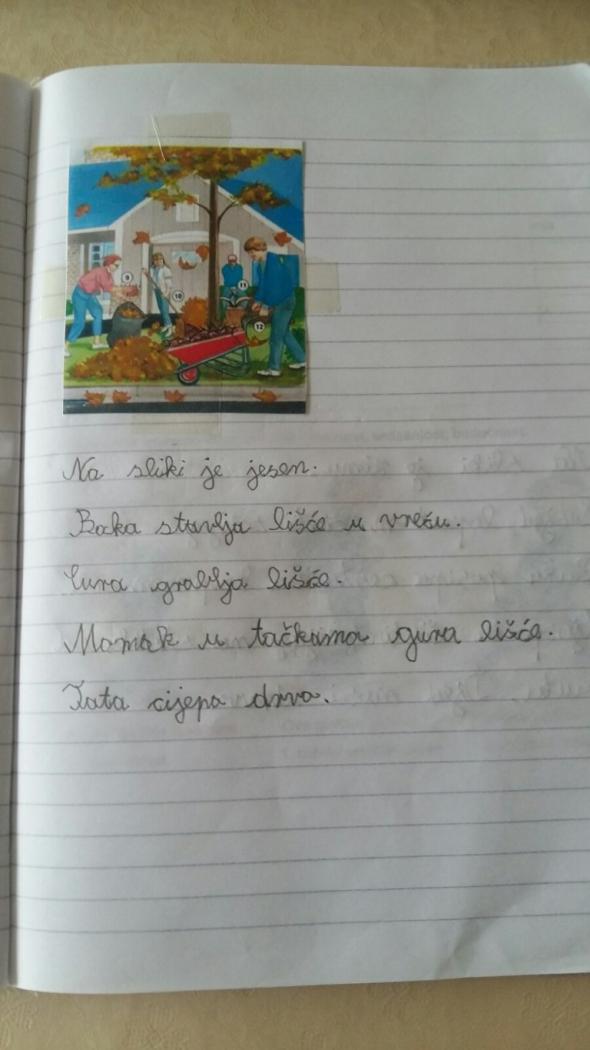 9
10
11
12
Na sliki je jesen.
Baka stavlja lišće u vreću.
Cura grablja lišće.
Momak u tačkama gura lišće.
Tata cijepa drva.